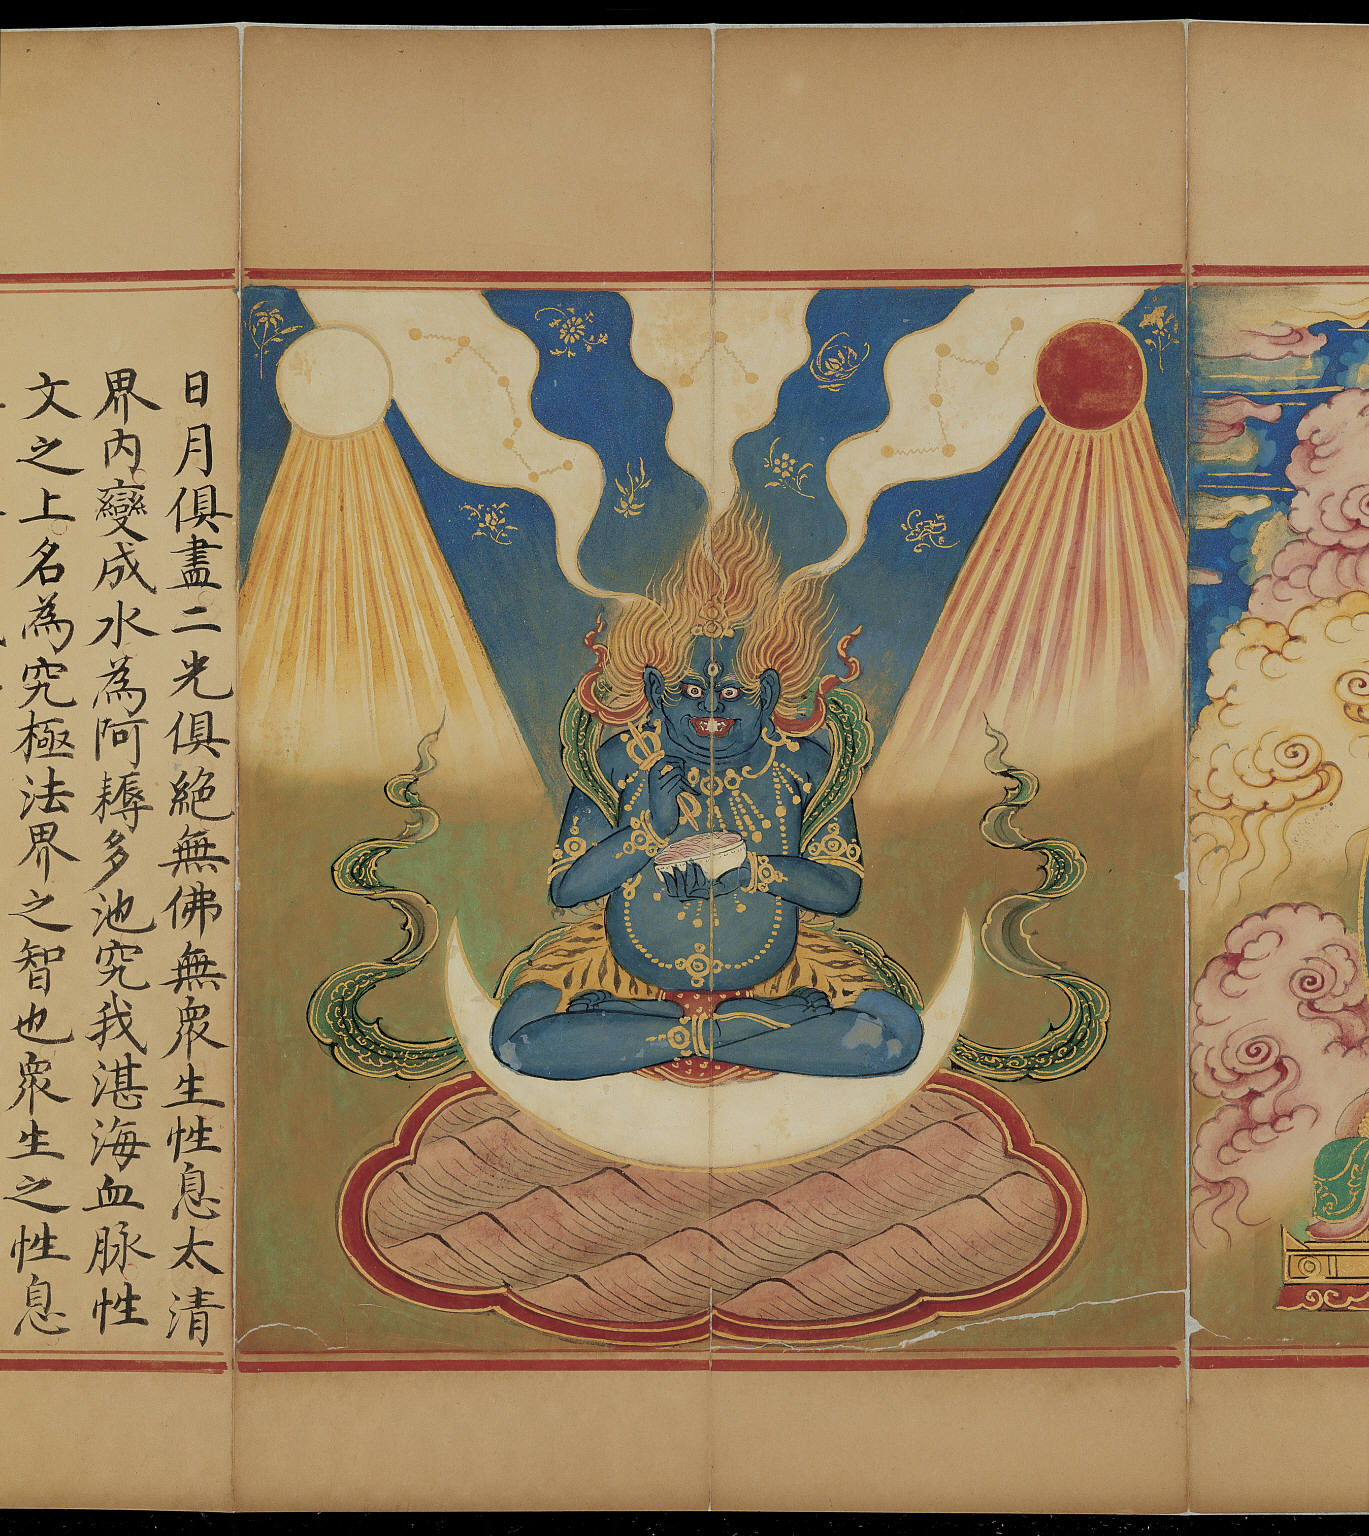 日月俱盡二光俱絕無佛無眾生性息太清
界內變成水為阿耨多池究我湛海血脉性
文之上名為究極法界之智也眾生之性息